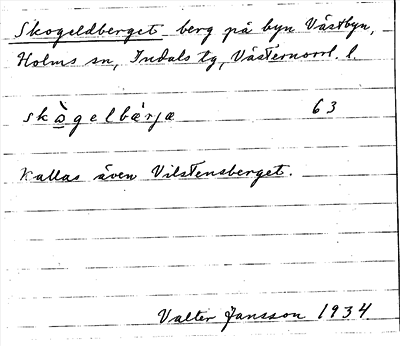 Skogeldberget berg på byn Västbyn,
Holms sn, Indals tg, Västernorrl. l.
skògelbärjæ 63
Kallas även Vilstensberget.
Valter Jansson 1934